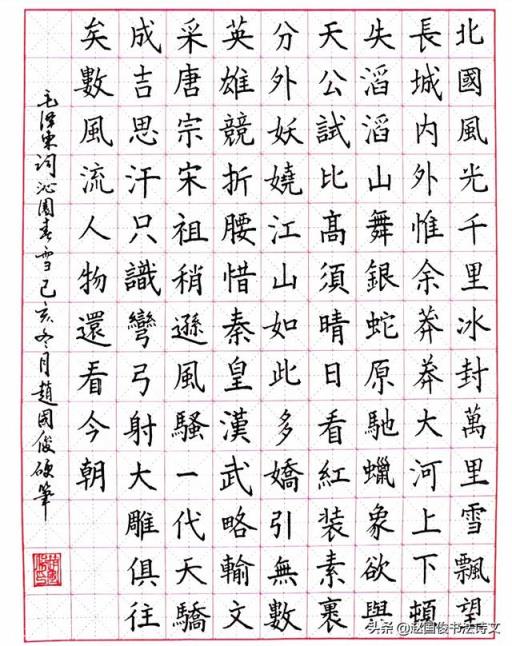 北國風光千里冰封萬里雪飄望
長城内外惟余莽莽大河上下頓
失滔滔山舞銀蛇原馳蠟象欲與
天公試比髙須晴日看紅裝素裹
分外妖嬈江山如此多嬌引無數
英雄競折腰惜秦皇漢武略輸文
采唐宗宋祖稍遜風騷一代天驕
成吉思汗只識彎弓射大雕俱往
矣數風流人物還看今朝
毛澤東詞沁園春雪己亥冬月趙國俊硬筆
头条 @赵国俊书法诗文